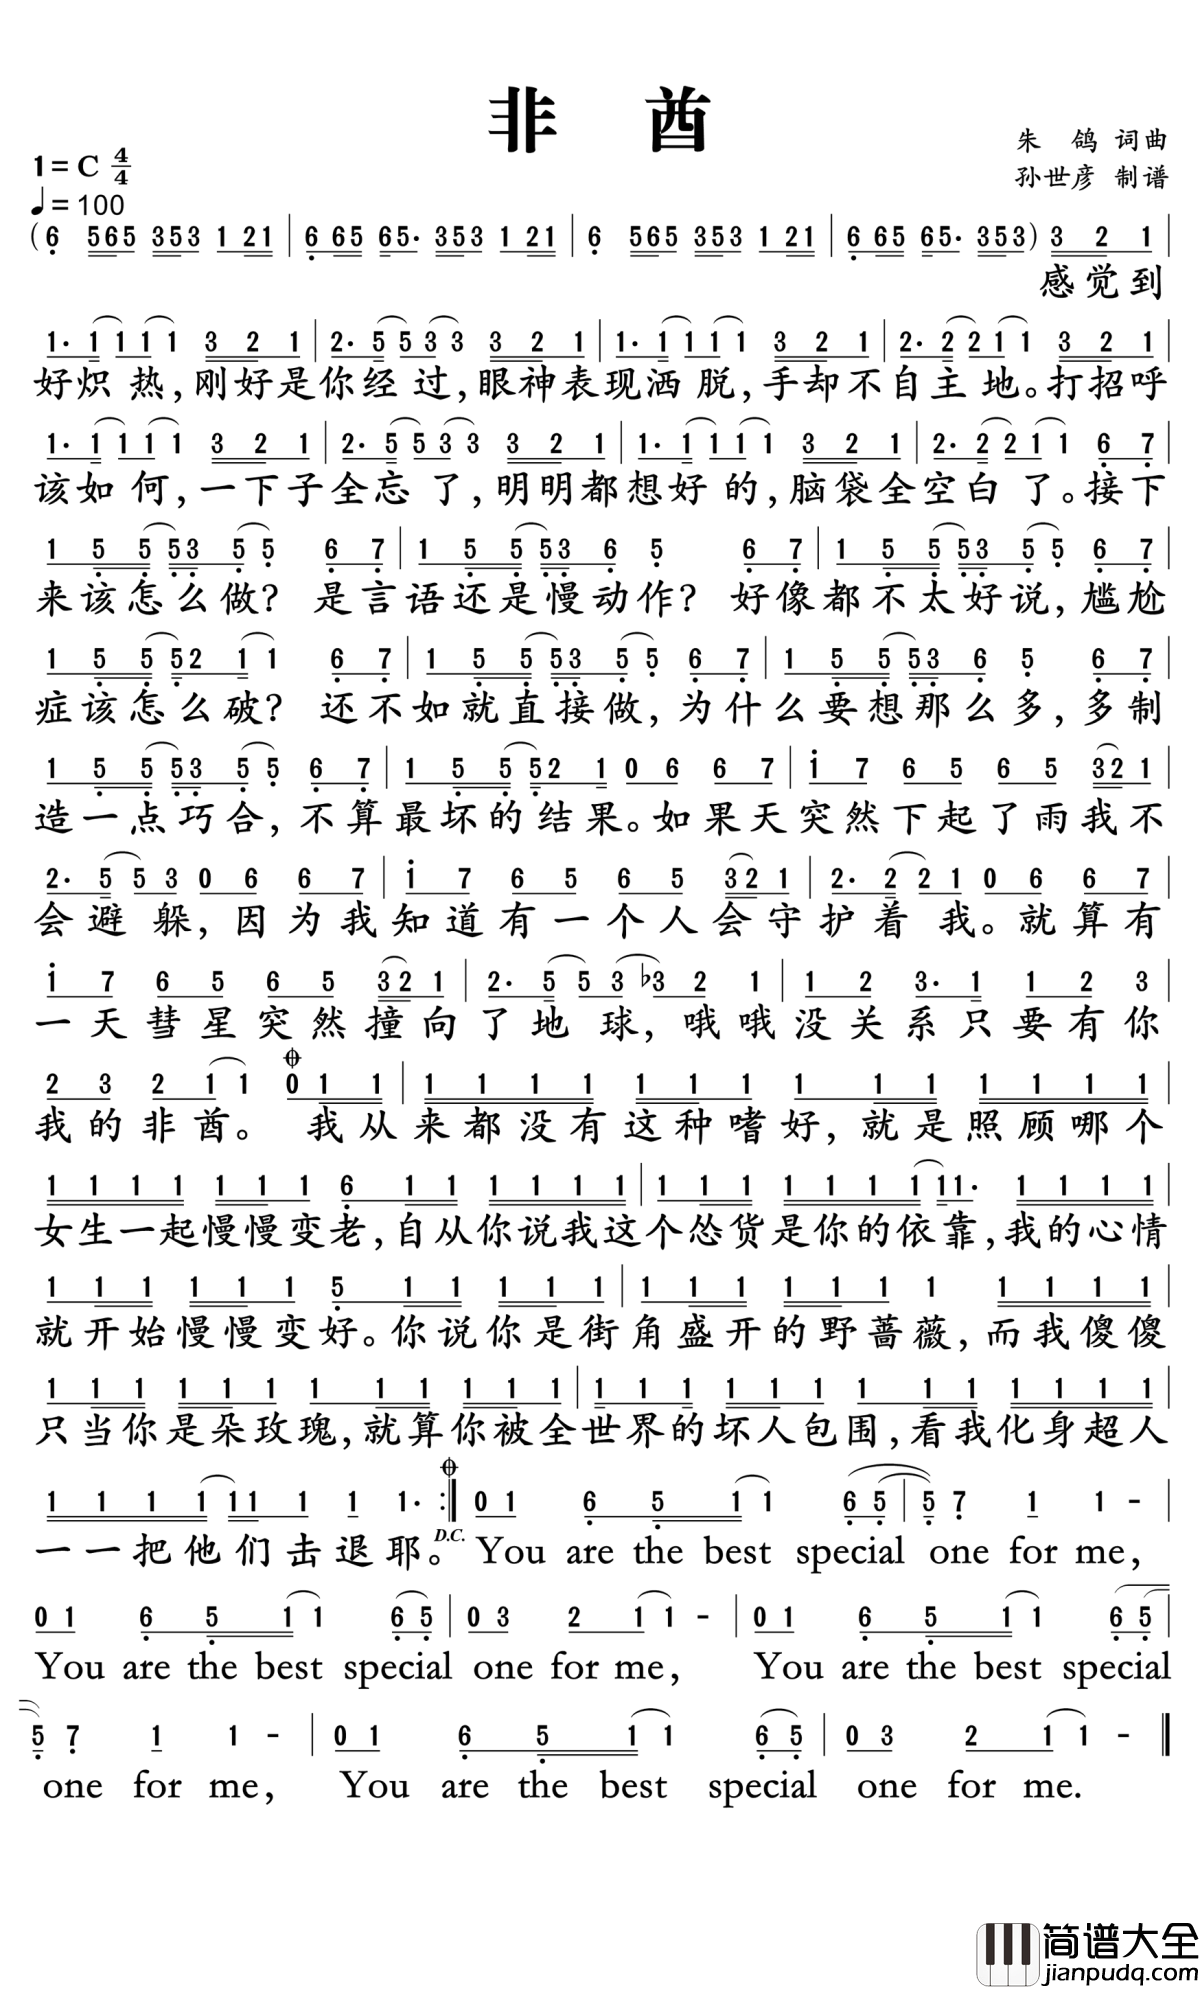 非 酋
朱 鸽 词曲
孙世彦 制谱
1=C 4/4
♩=100
(6 565 353 1 21 | 6 65 65· 353 1 21 | 6 565 353 1 21 | 6 65 65· 353) 3 2 1 |
感觉到
1· 1 1 1 1 3 2 1 | 2· 5 5 3 3 3 2 1 | 1· 1 1 1 1 3 2 1 | 2· 2 2 1 1 3 2 1 |
好炽热,刚好是你经过,眼神表现洒脱,手却不自主地。打招呼
1· 1 1 1 1 3 2 1 | 2· 5 5 3 3 3 2 1 | 1· 1 1 1 1 3 2 1 | 2· 2 2 1 1 6 7 |
该如何,一下子全忘了,明明都想好的,脑袋全空白了。接下
1 5 5 53 5 5 6 7 | 1 5 5 53 6 5 6 7 | 1 5 5 53 5 5 6 7 |
来该怎么做?是言语还是慢动作?好像都不太好说,尴尬
1 5 5 52 1 1 6 7 | 1 5 5 53 5 5 6 7 | 1 5 5 53 6 5 6 7 |
症该怎么破?还不如就直接做,为什么要想那么多,多制
1 5 5 53 5 5 6 7 | 1 5 5 52 1 0 6 6 7 | i 7 6 5 6 5 32 1 |
造一点巧合,不算最坏的结果。如果天突然下起了雨我不
2· 5 5 3 0 6 6 7 | i 7 6 5 6 5 32 1 | 2· 2 2 1 0 6 6 7 |
会避躲,因为我知道有一个人会守护着我。就算有
i 7 6 5 6 5 32 1 | 2· 5 5 3 ♭3 2 1 | 1 2 3· 1 1 2 3
一天彗星突然撞向了地球,哦哦没关系只要有你
2 3 2 1 1 0 1 1 | 1 1 1 1 1 1 1 1 1 1 1 1 1 1 |
我的非酋。我从来都没有这种嗜好,就是照顾哪个
1 1 1 1 1 1 1 6 1 1 1 1 1 1 | 1 1 1 1 1 1 1 11· 1 1 1 1 |
女生一起慢慢变老,自从你说我这个怂货是你的依靠,我的心情
1 1 1 1 1 1 5 1 1 1 1 1 1 | 1 1 1 1 1 1 1 1 1 1 1 |
就开始慢慢变好。你说你是街角盛开的野蔷薇,而我傻傻
1 1 1 1 1 1 1 1 1 1 1 1 | 1 1 1 1 1 1 1 1 1 1 1 1 |
只当你是朵玫瑰,就算你被全世界的坏人包围,看我化身超人
1 1 1 1 11 1 1 1· :| 0 1 6 5 1 1 6 5 | 5 7 1 1 - |
一一把他们击退耶。D.C. You are the best special one for me,
0 1 6 5 1 1 6 5 | 0 3 2 1 1 - | 0 1 6 5 1 1 6 5 |
You are the best special one for me, You are the best special
5 7 1 1 - | 0 1 6 5 1 1 6 5 | 0 3 2 1 1 - ‖
one for me, You are the best special one for me.
简谱大全
jianpudq.com